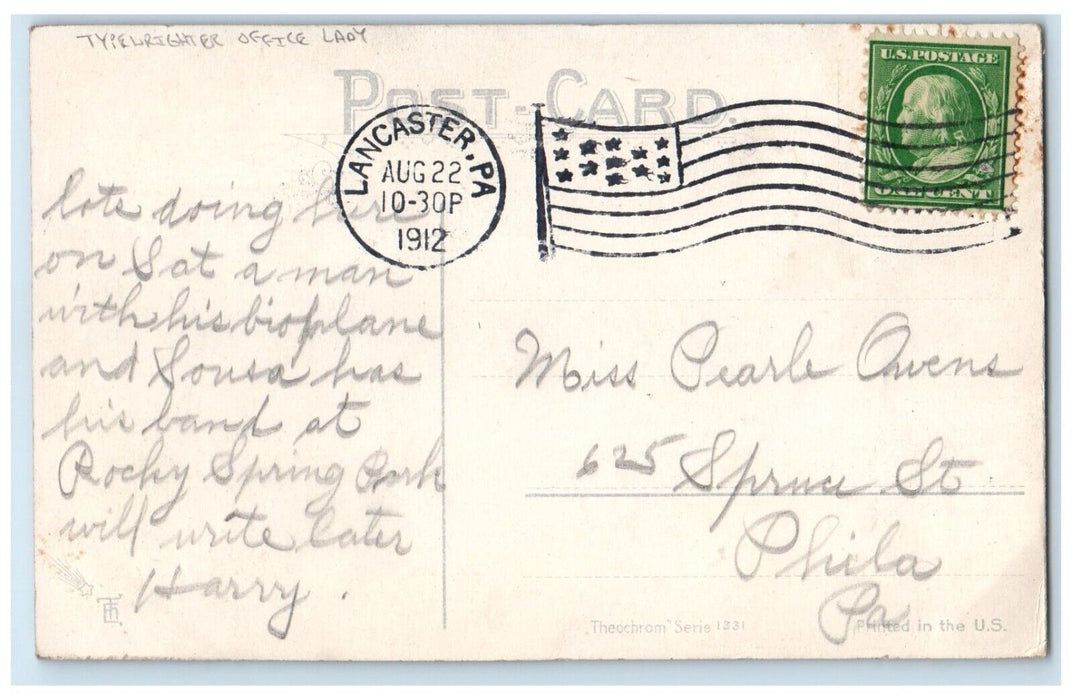 TYPEWRIGHTER OFFICE LADY
POST-CARD.
U.S. POSTAGE
ONE CENT
LANCASTER, PA
AUG 22
10-30P
1912
lots doing here
on Sat a man
with his bioplane
and Sousa has
his band at
Rocky Spring Park
will write later
Harry.
Miss Pearle Owens
625 Spruce St
Phila
Pa
"Theochrom" Serie 1331
Printed in the U.S.